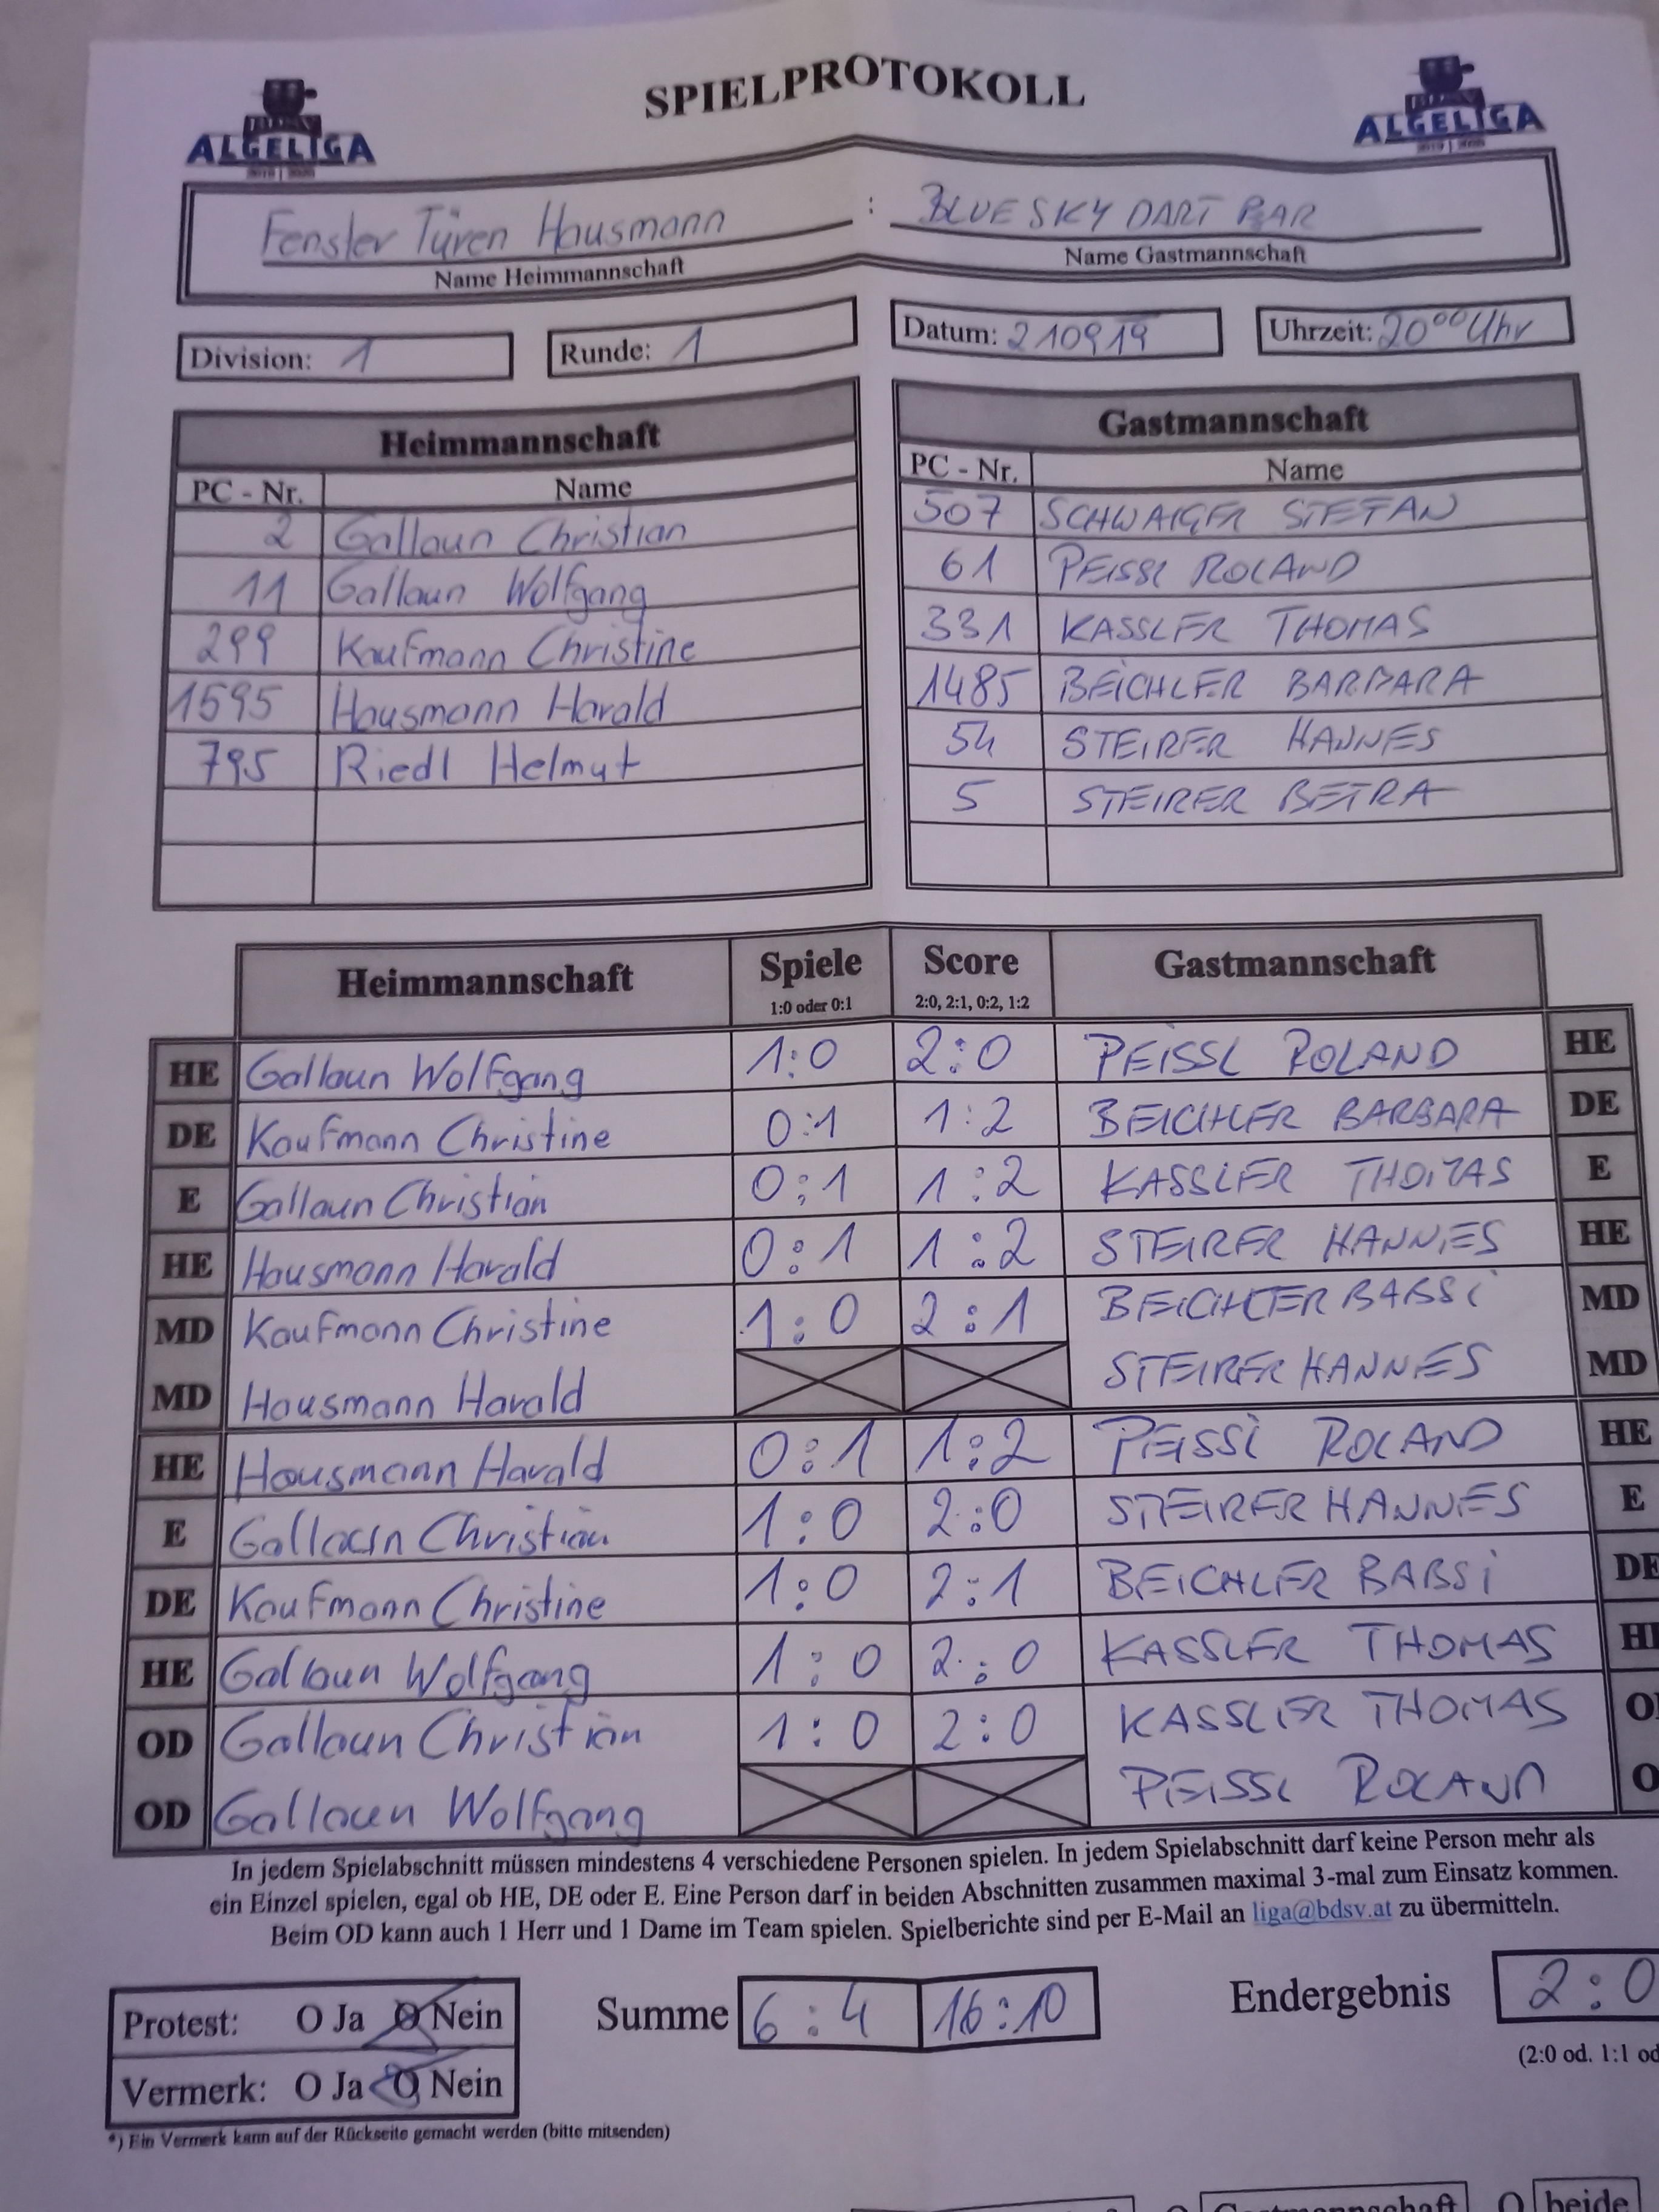 SPIELPROTOKOLL
ALGELIGA
ALGELIGA
Fenster Türen Hausmann : BLUE SKY DART BAR
Name Heimmannschaft Name Gastmannschaft
Division: 1 Runde: 1 Datum: 210919 Uhrzeit: 20⁰⁰ Uhr
Heimmannschaft
PC - Nr. Name
2 Gallaun Christian
11 Gallaun Wolfgang
299 Kaufmann Christine
1595 Hausmann Harald
795 Riedl Helmut
Gastmannschaft
PC - Nr. Name
507 SCHWAIGER STEFAN
61 PEISSL ROLAND
331 KASSLER THOMAS
1485 BEICHLER BARBARA
54 STEIRER HANNES
5 STEIRER BETRA
Heimmannschaft Spiele Score Gastmannschaft
1:0 oder 0:1 2:0, 2:1, 0:2, 1:2
HE Gallaun Wolfgang 1:0 2:0 PEISSL ROLAND HE
DE Kaufmann Christine 0:1 1:2 BEICHLER BARBARA DE
E Gallaun Christian 0:1 1:2 KASSLER THOMAS E
HE Hausmann Harald 0:1 1:2 STEIRER HANNES HE
MD Kaufmann Christine 1:0 2:1 BEICHLER BABSI MD
MD Hausmann Harald STEIRER HANNES MD
HE Hausmann Harald 0:1 1:2 PEISSL ROLAND HE
E Gallaun Christian 1:0 2:0 STEIRER HANNES E
DE Kaufmann Christine 1:0 2:1 BEICHLER BABSI DE
HE Gallaun Wolfgang 1:0 2:0 KASSLER THOMAS HE
OD Gallaun Christian 1:0 2:0 KASSLER THOMAS O
OD Gallaun Wolfgang PEISSL ROLAND O
In jedem Spielabschnitt müssen mindestens 4 verschiedene Personen spielen. In jedem Spielabschnitt darf keine Person mehr als
ein Einzel spielen, egal ob HE, DE oder E. Eine Person darf in beiden Abschnitten zusammen maximal 3-mal zum Einsatz kommen.
Beim OD kann auch 1 Herr und 1 Dame im Team spielen. Spielberichte sind per E-Mail an liga@bdsv.at zu übermitteln.
Protest: O Ja O Nein Summe 6:4 16:10 Endergebnis 2:0
Vermerk: O Ja O Nein (2:0 od. 1:1 od
*) Ein Vermerk kann auf der Rückseite gemacht werden (bitte mitsenden)
O Gastmannschaft O beide